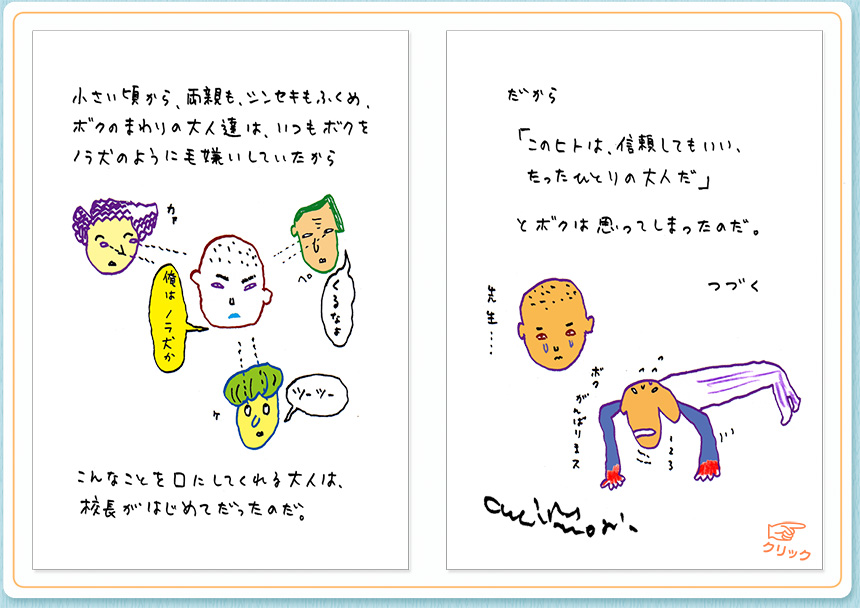 小さい頃から、両親も、シンセキもふくめ、
ボクのまわりの大人達は、いつもボクを
ノラ犬のように毛嫌いしていたから
カァ
俺はノラ犬か
くるなよ
ペ
ツーツー
ケ
こんなことを口にしてくれる大人は、
校長がはじめてだったのだ。
だから
「このヒトは、信頼してもいい、
たったひとりの大人だ」
とボクは思ってしまったのだ。
つづく
先生....
ボクがんばりまス
123
クリック